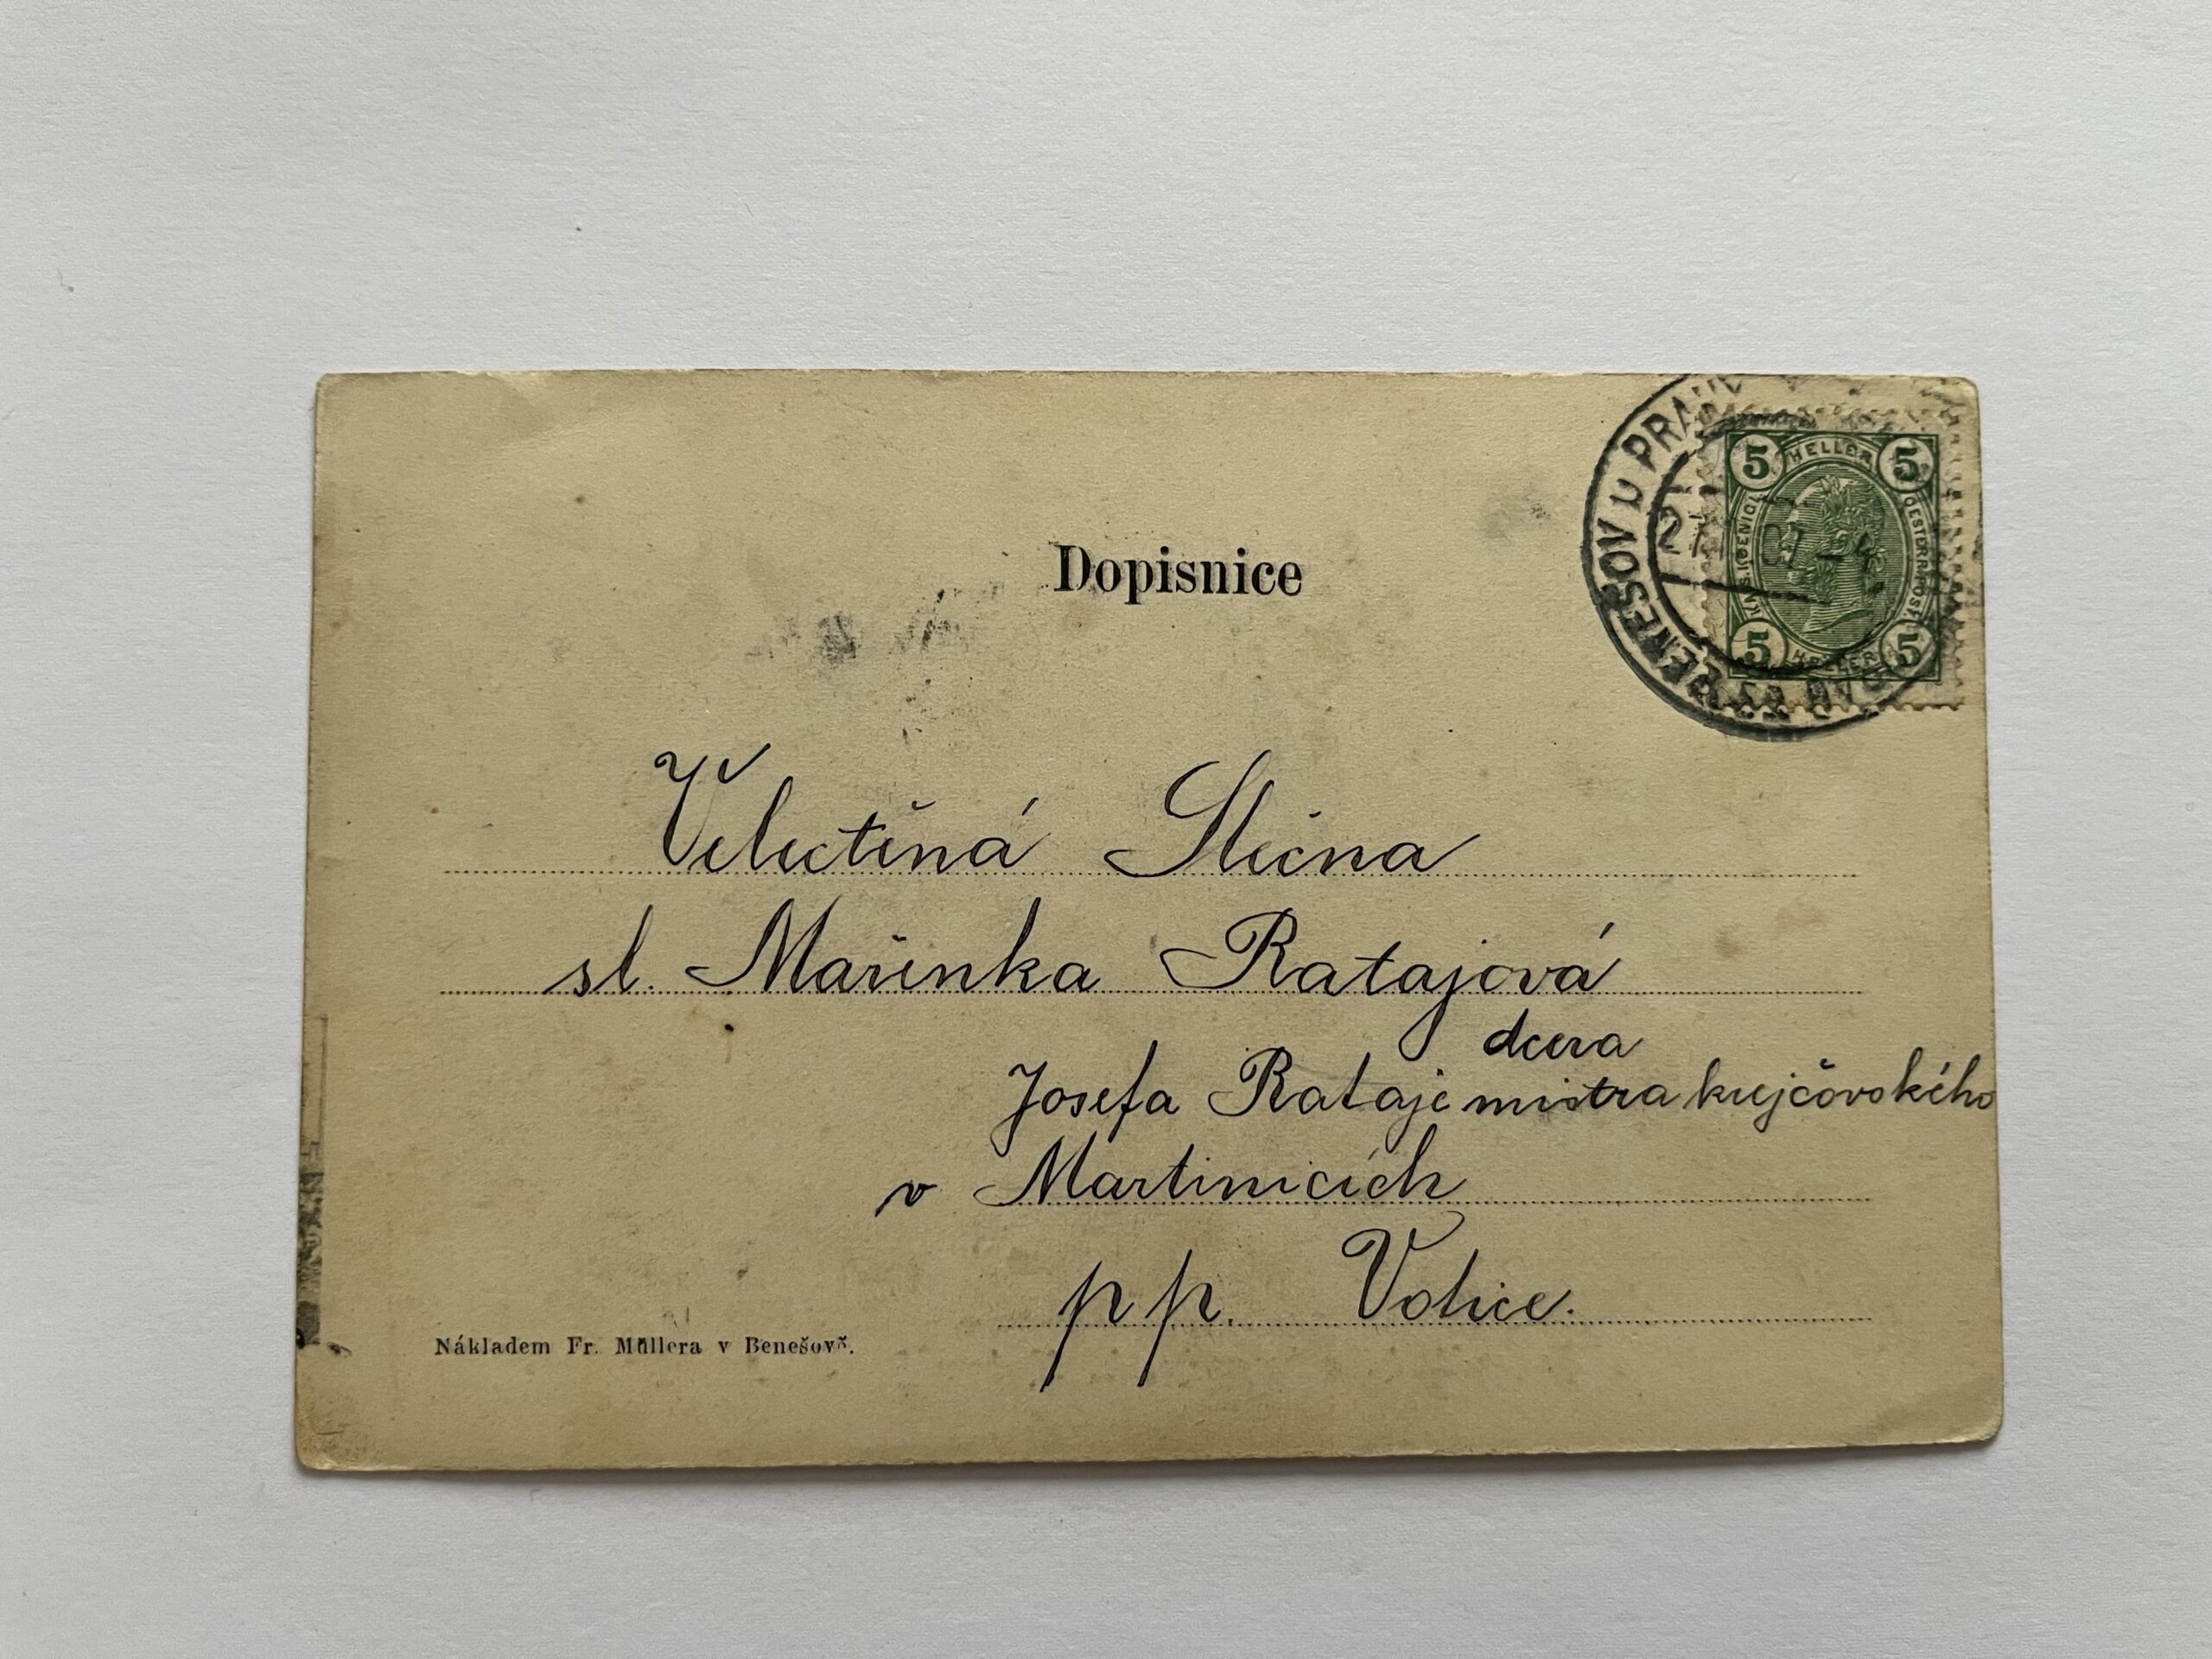 Dopisnice
BENEŠOV U PRAHY
5 HELLER 5
5 HELLER 5
Velectěná Slečna
sl. Mařenka Ratajová
dcera
Josefa Rataje mistra krejčovského
v Martinicích
pp. Votice.
Nákladem Fr. Müllera v Benešově.